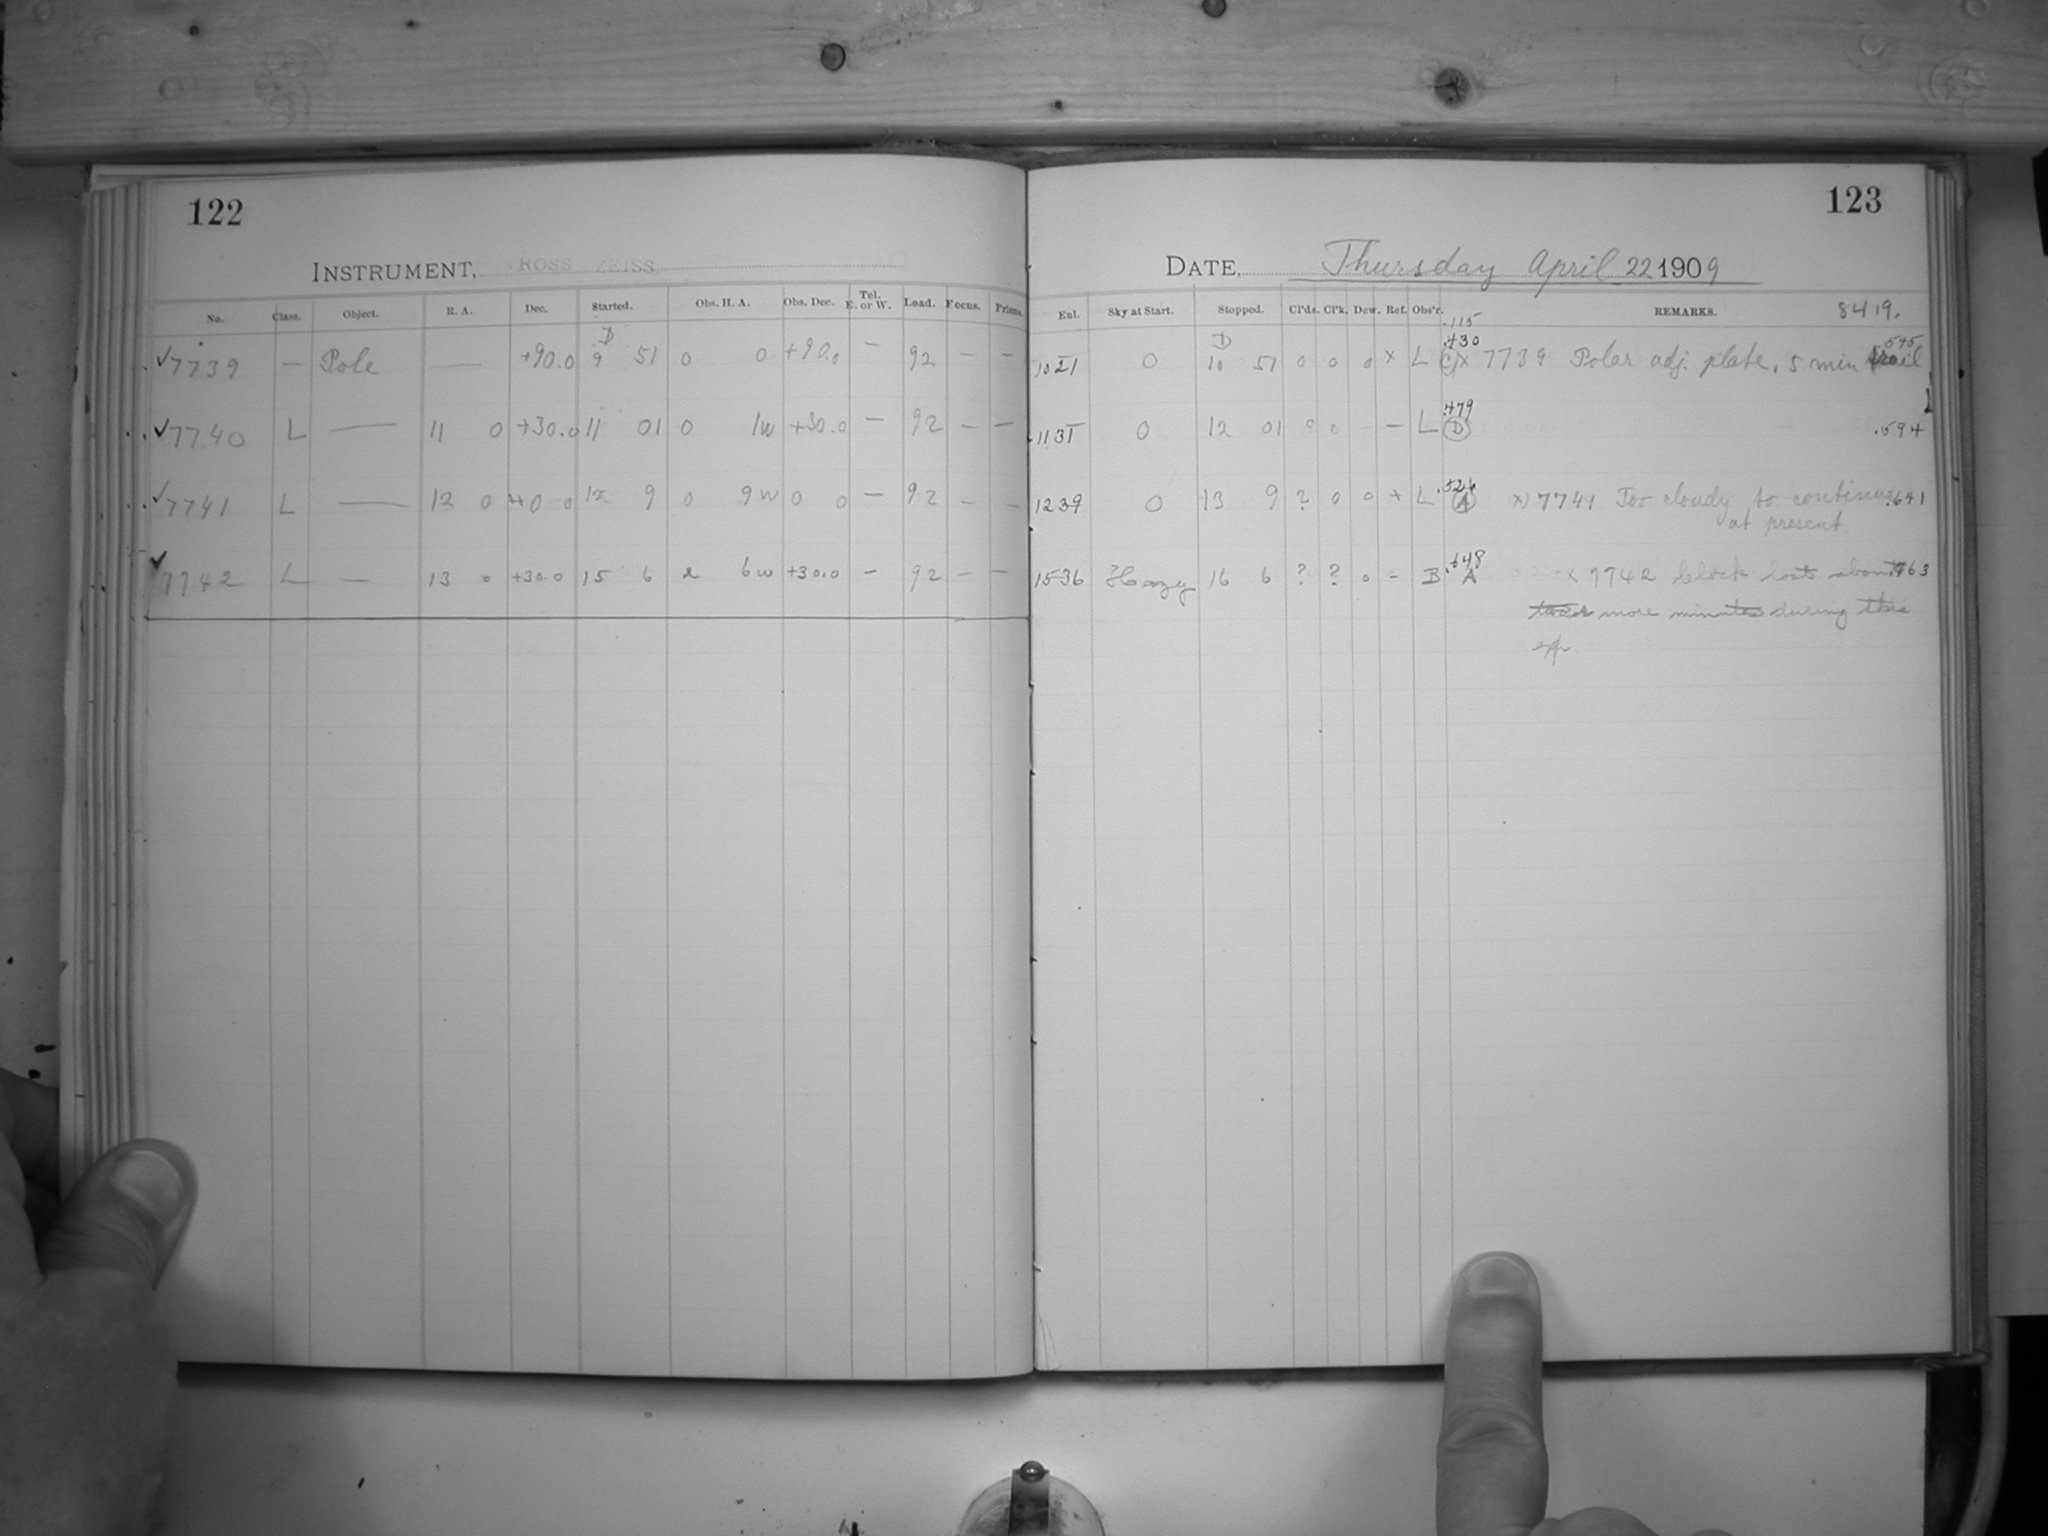 122
INSTRUMENT, ROSS ZEISS
No. Class. Object. R. A. Dec. Started. Obs. H. A. Obs. Dec. Tel. E. or W. Load. Focus. Prisms.
D
✓7739 — Pole — +90.0 9 51 0 0 +90.0 — 92 — —
✓7740 L — 11 0 +30.0 11 01 0 1w +30.0 — 92 — —
✓7741 L — 12 0 +0 0 12 9 0 9w 0 0 — 92 — —
✓7742 L — 13 0 +30.0 15 6 2 6w +30.0 — 92 — —
123
DATE, Thursday April 22 1909
Enl. Sky at Start. Stopped. Cl'ds. Cl'k. Dew. Ref. Obs'r. REMARKS. 8419.
.115
D .430 .545
1021 0 10 51 0 0 0 x L C x 7739 Polar adj. plate, 5 min trail
.479
1131 0 12 01 ? 0 — — L D .594
.526
1239 0 13 9 ? 0 0 + L A x 7741 Too cloudy to continue .641
at present.
.648
1536 Hazy 16 6 ? ? 0 - B A x 7742 Clock lost about 763
more minutes during this
exp.